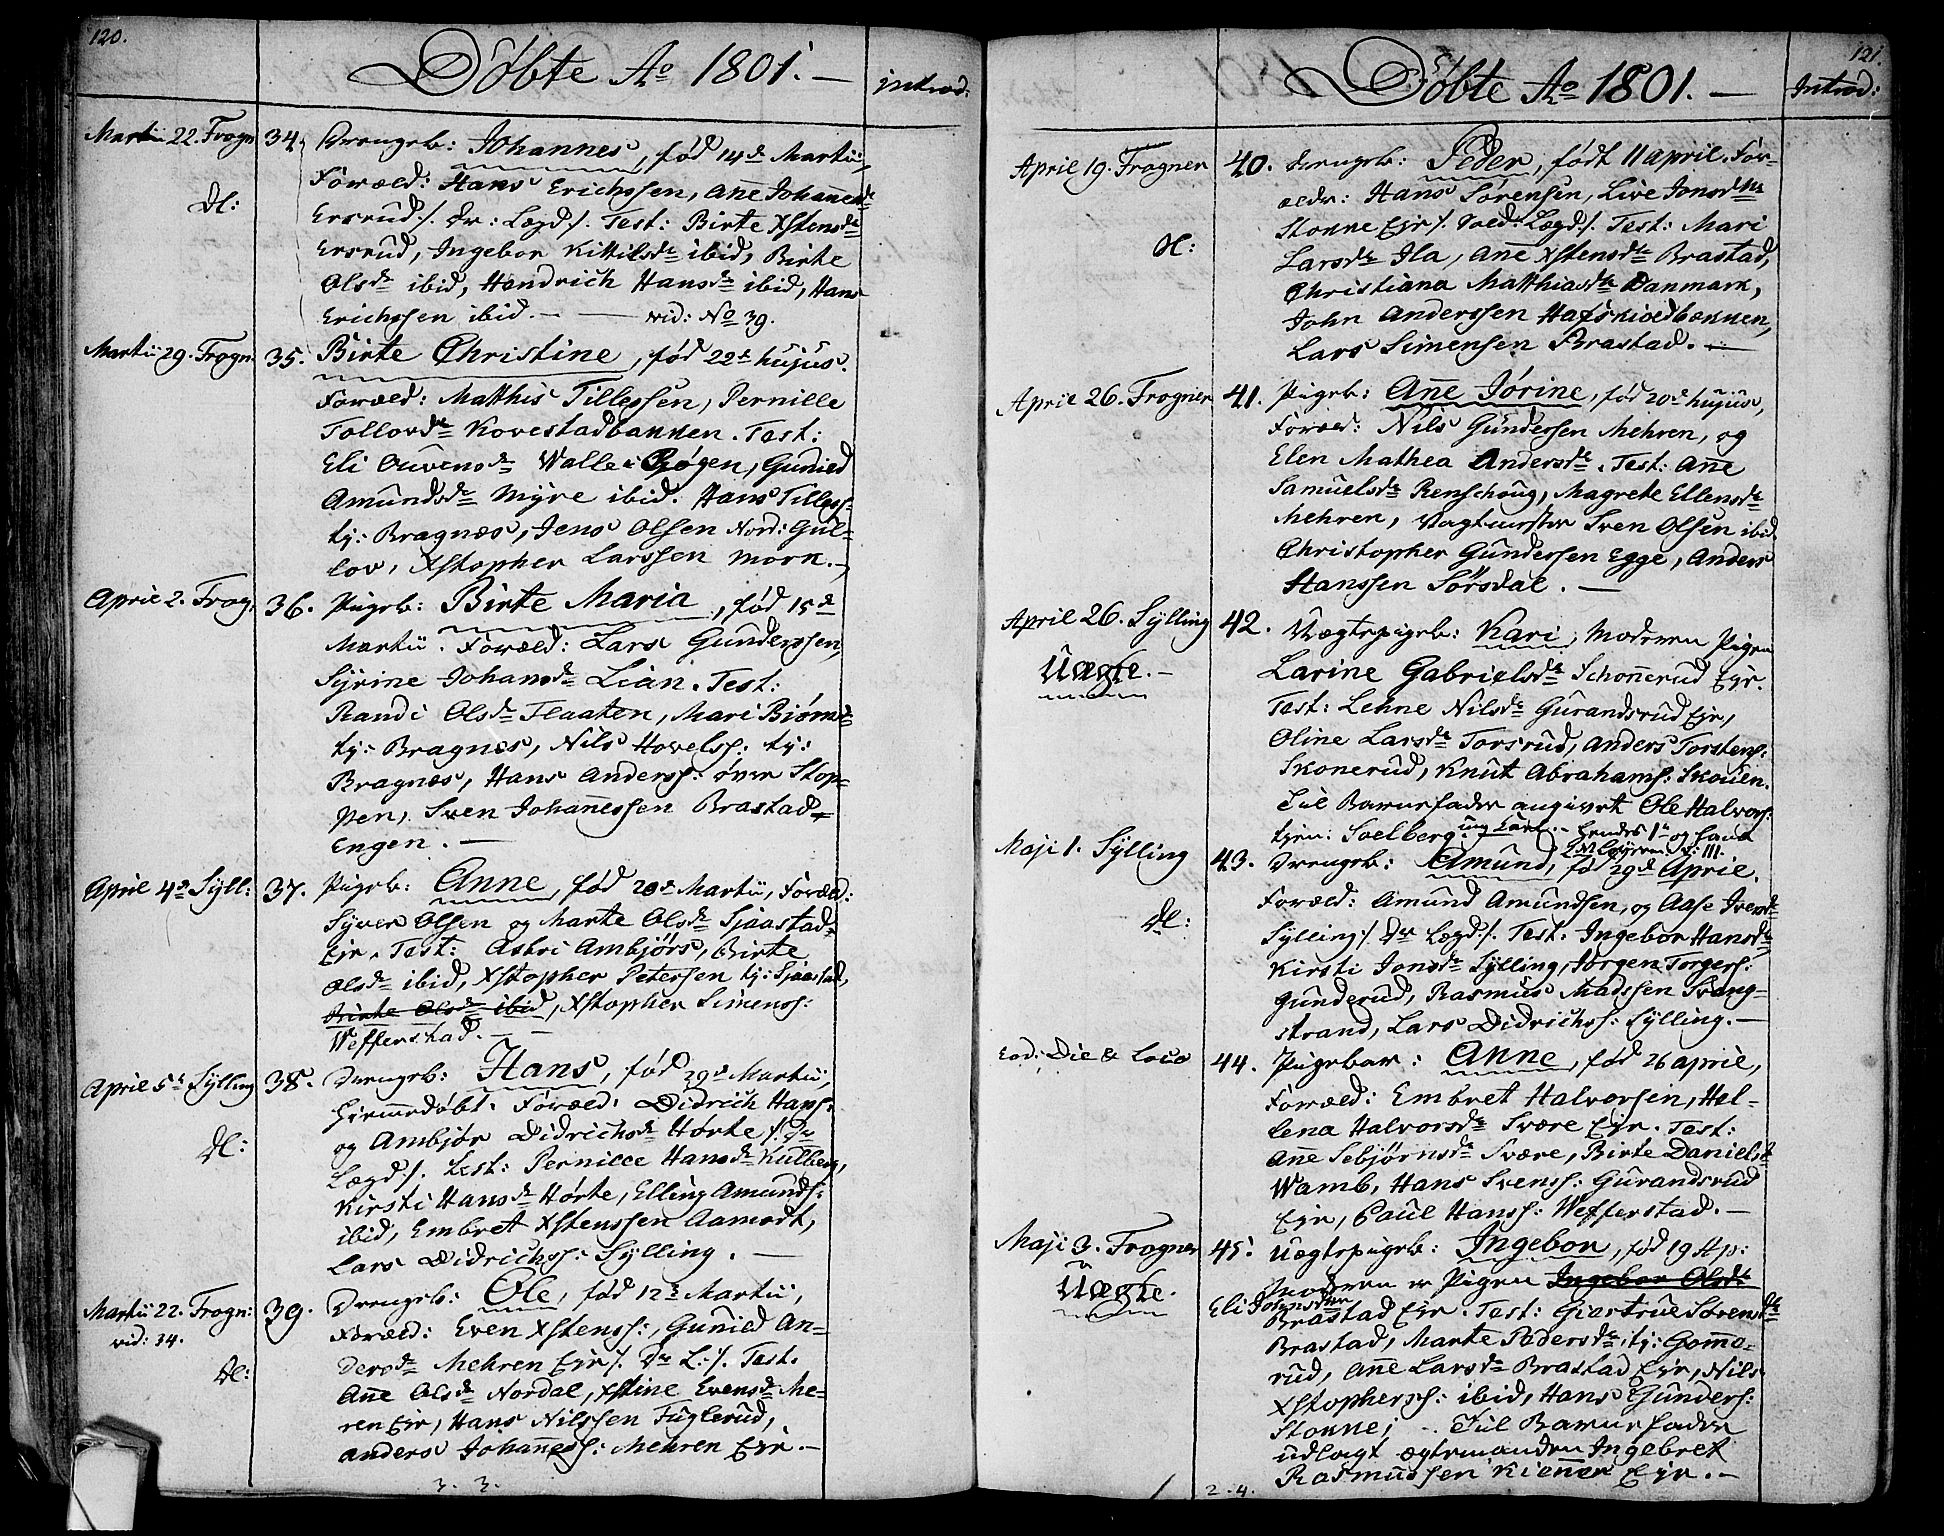 120.
Döbte Aº 1801. —
introd:
Martii 22. Frogn
34.
Drengeb: Johannes, fød 14de Martii,
Foræld: Hans Erichssen, Añe Johañesdr
Dl:
Ersrud /. Dr: Lægd /. Test: Birte Xstensdr
Ersrud, Ingebor Kittilsdr ibid, Birte
Olsdr ibid, Hendrich Hansdr ibid, Hans
Erichssen ibid. — — vid: No 39.
Martii 29. Frogn:
35.
Birte Christine, fød 22de hujus.
Foræld: Mathis Tillessen, Pernille
Tollovdr Kovestadbakken. Test:
Eli Ouvensdr Walle i Røgen, Gunild
Amundsdr Myre ibid. Hans Tilless:
tj: Bragnæs, Jens Olsen Nord: Gul-
lov, Xstopher Larssen Mork. —
April 2. Frog.
36.
Pigeb: Birte Maria, fød 15de
Martii. Foræld: Lars Gunderssen,
Syrine Johansdr Lian. Test:
Randi Olsdr Flaaten, Mari Biørnsdr
tj: Bragnes, Nils Hovelss: tj:
Bragnæs, Hans Anderss: över Stop-
pen, Sven Johañessen Brastad-
Engen. —
April 4de Syll:
37.
Pigeb: Anne, fød 20de Martii, Foræld:
Syver Olsen og Marte Olsdr Sjaastad-
Ejr. Test: Astri Ambjörs, Birte
Olsdr ibid, Xstopher Petersen tj: Sjaastad,
Birte Olsdr ibid, Xstopher Simenss:
Wefferstad. — —
April 5te Sylling
38.
Drengeb: Hans, fød 29de Martii,
hjemmedøbt. Foræld: Didrich Hans:
og Ambjør Didrichsdr Hørte /. Dr
Dl:
Lægd /. Test: Pernille Hansdr Kulberg,
Kirsti Hansdr Hørte, Elling Amunds:
ibid, Embret Xstenssen Aamodt,
Lars Didrichss: Sylling. —
Martii 22. Frogn:
vid: 34.
39.
Drengeb: Ole, fød 12te Martii,
Foræld: Even Xstenss:, Gunild An-
dersdr Mehren Ejr /. Dr L: /. Test.
Dl:
Añe Olsdr Nordal, Xstine Evensdr Me-
ren Ejr, Hans Nilssen Fuglerud,
Anders Johañess: Mehren Ejr. —
3. 3.
121.
Döbte Aº 1801. —
Introd:
April 19. Frogner
40.
Drengeb: Peder, født 11 April. For-
ældr: Hans Sørensen, Live Jonsdtr
Stonne Ejr /. Sold: Lægd /. Test: Mari
Dl:
Larsdr Ila, Añe Xstensdr Brastad,
Christiana Matthiasdtr Danmark,
John Anderssen Hafskioldbakken,
Lars Simensen Brastad. —
April 26. Frogner
41.
Pigeb: Añe Jörine, fød 20de hujus,
Foræld: Nils Gundersen Mehren, og
Elen Mathea Andersdr. Test: Añe
Samuelsdr Renschoug, Magrete Ellensdr
Mehren, Vagtmester Sven Olsen ibid
Christopher Gunderssen Egge, Anders
Hanssen Sörsdal. —
April 26. Sylling
42.
Uægte. —
Uægtepigeb: Kari, Moderen Pigen
Larine Gabrielsdr Schoñerud Ejr.
Test: Lehne Nilsdr Gurandsrud Ejr,
Oline Larsdr Torsrud, Anders Torstens:
Skonerud, Knut Abrahams: Skouen.
Til Barnefader angivet Ole Halvors:
tjen: Solberg, ung Karl. — hendes 1te og hans
Maji 1. Sylling
43.
Drengeb: Amund, fød 29de Aprile.
Foræld: Amund Amundsen, og Aase Iversdr
Dl:
Sylling /. Dr Lægd /. Test: Ingebor Hansdr
Kirsti Jonsdr Sylling, Jörgen Torgers:
Gunderud, Rasmus Madssen Svang-
strand, Lars Didrichss: Sylling. —
Eod: Die & Loco
44.
Pigebar: Anne, fød 26 April,
Foræld: Embret Halvorsen, Hel-
lena Halvorsdr Svære Ejr. Test:
Añe Sebjørnsdr Svære, Birte Danielsdr
Wamb, Hans Svenss: Gurandsrud
Ejr, Paul Hanss: Wefferstad. —
Maji 3. Frogner
45.
Uægte.
Uægtepigeb: Ingebor, fød 19 Ap:
Moderen er Pigen Ingebor Olsdr
Eli Johensdtr
Brastad Ejr. Test: Giertrue Sörensdr
Brastad, Marte Pedersdr, tj: Gomme-
rud, Añe Larsdr Brastad Ejr, Nils
Xstopherss: ibid, Hans Gunders:
Stonne; — Til Barnefader
udlagt ægtemanden Ingebret
Rasmussen Kieñer Ejr. —
2. 4.